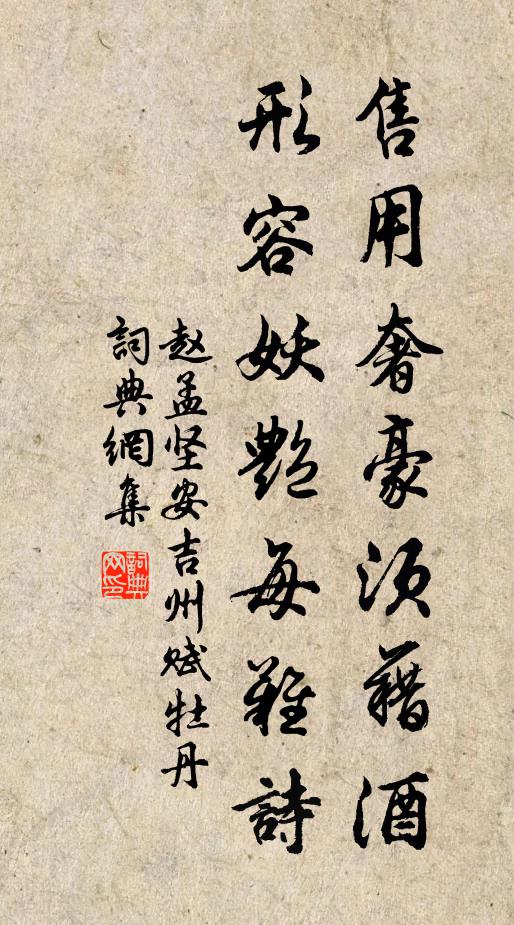 售用奢豪须藉酒
形容妖艷每難詩
赵孟坚安吉州赋牡丹
詞典網集
詞典网印